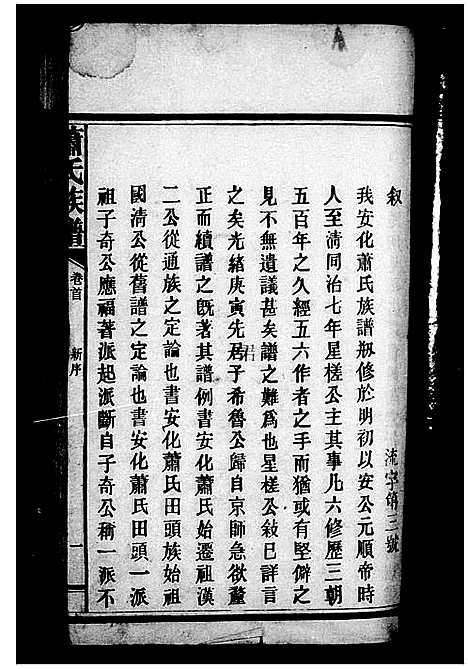 叙
我安化蕭氏族譜刱修於明初以安公元順帝時
人至清同治七年星槎公主其事凡六修歷三朝
五百年之久經五六作者之手而猶或有堅僻之
見不無遺議甚矣譜之難為也星槎公敘已詳言
之矣光緒庚寅先君子希魯公歸自京師急欲釐
正而續譜之旣著其譜例書安化蕭氏始遷祖漢
二公從通族之定論也書安化蕭氏田頭族始祖
國清公從舊譜之定論也書安化蕭氏田頭一派
祖子奇公應福著派起派斷自子奇公稱一派不
蕭氏族譜
卷首
新序
一
流字第三號